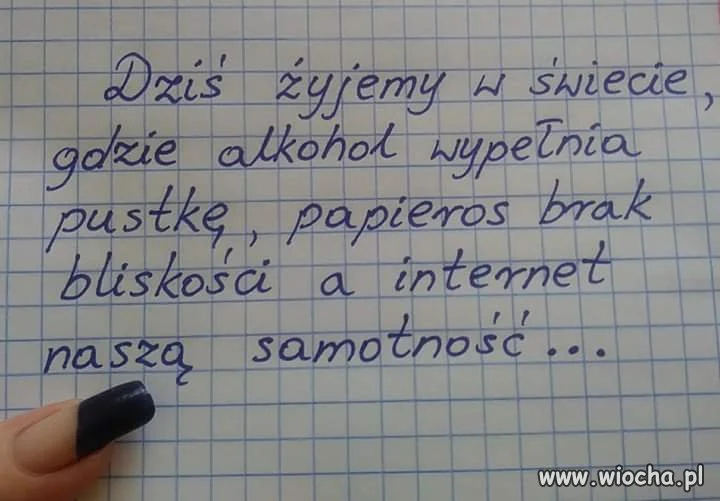 Dziś żyjemy w świecie,
gdzie alkohol wypełnia
pustkę, papieros brak
bliskości a internet
naszą samotność...
www.wiocha.pl